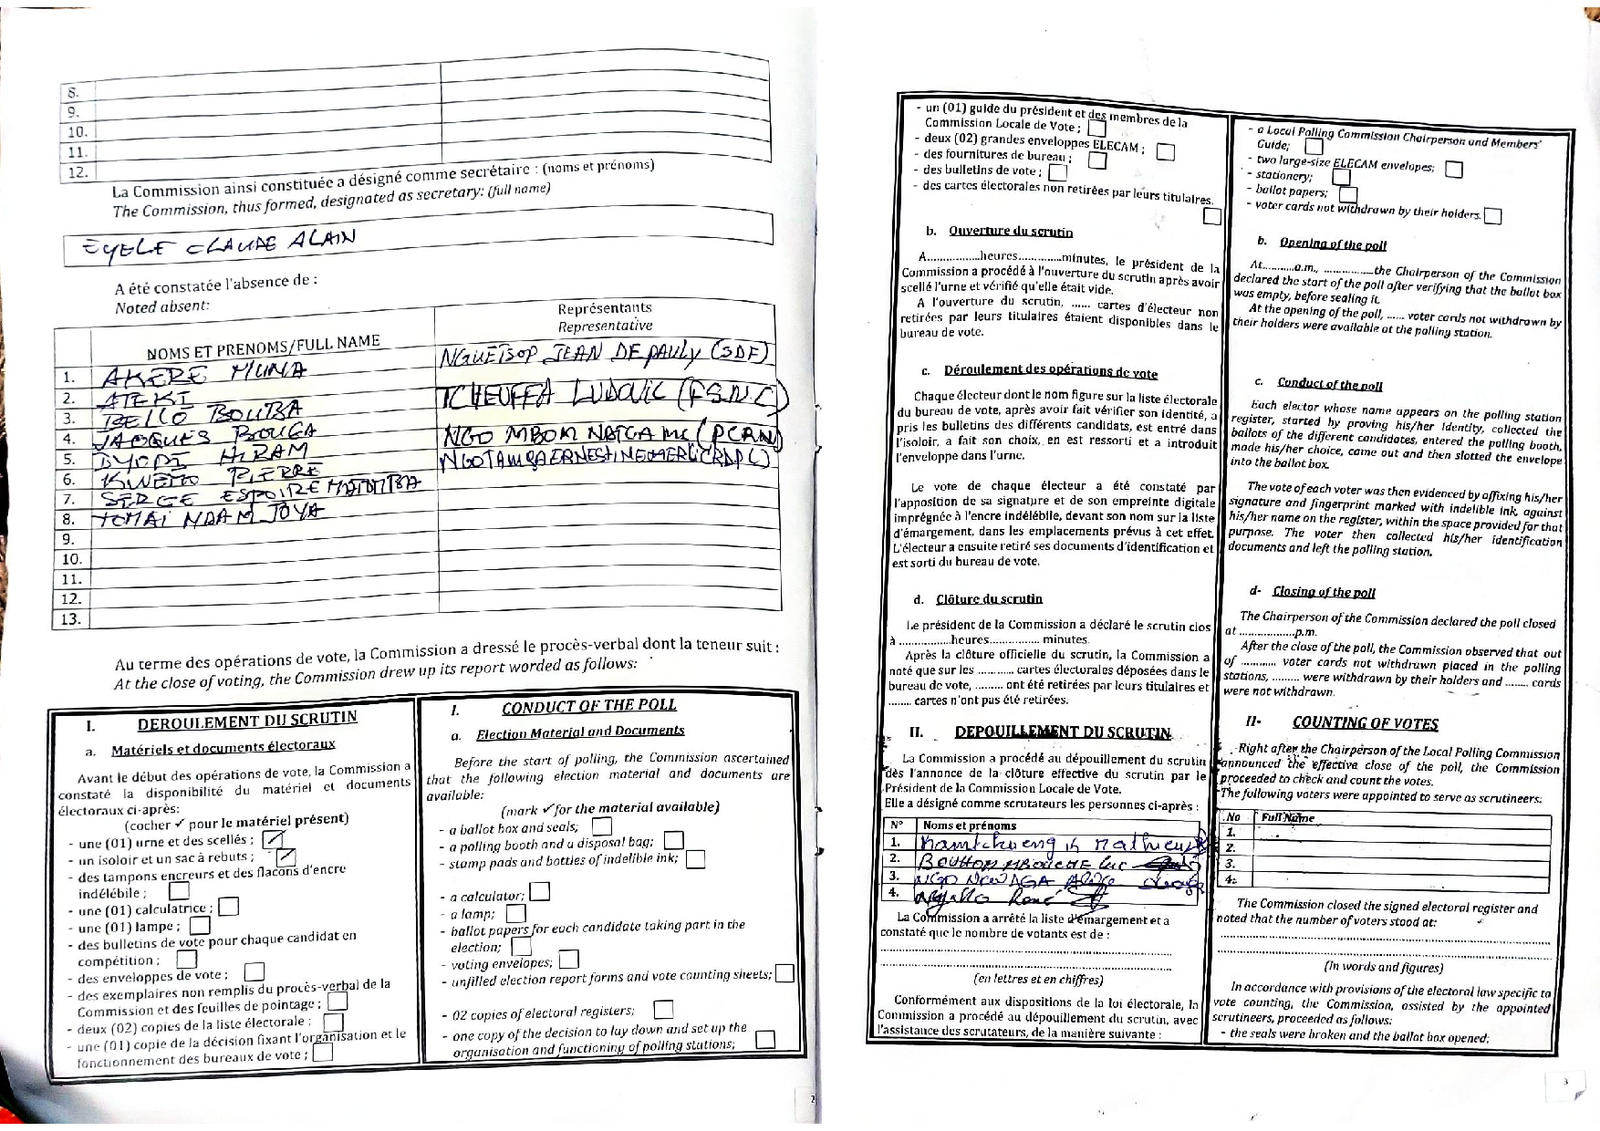 8.
9.
10.
11.
12.
La Commission ainsi constituée a désigné comme secrétaire : (noms et prénoms)
The Commission, thus formed, designated as secretary: (full name)
EYELE CLAUDE ALAIN
A été constatée l'absence de :
Noted absent:
NOMS ET PRENOMS/FULL NAME
Représentants
Representative
1. AKERE MUNA
NGUETSOP JEAN DE PAULY (SDF)
2. ATEKI
TCHEUFFA LUDOVIC (FSNC)
3. BELLO BOUBA
4. JACQUES BOUGA
NGO MBOM (PCRN)
5. HIRAM
6. KWEMO PIERRE
7. SERGE ESPOIRE MATOMBA
8. NDAM JOYA
9.
10.
11.
12.
13.
Au terme des opérations de vote, la Commission a dressé le procès-verbal dont la teneur suit :
At the close of voting, the Commission drew up its report worded as follows:
I. DEROULEMENT DU SCRUTIN
a. Matériels et documents électoraux
Avant le début des opérations de vote, la Commission a
constaté la disponibilité du matériel et documents
électoraux ci-après:
(cocher ✓ pour le matériel présent)
- une (01) urne et des scellés ;
- un isoloir et un sac à rebuts ;
- des tampons encreurs et des flacons d'encre
indélébile ;
- une (01) calculatrice ;
- une (01) lampe ;
- des bulletins de vote pour chaque candidat en
compétition ;
- des enveloppes de vote ;
- des exemplaires non remplis du procès-verbal de la
Commission et des feuilles de pointage ;
- deux (02) copies de la liste électorale ;
- une (01) copie de la décision fixant l'organisation et le
fonctionnement des bureaux de vote ;
I. CONDUCT OF THE POLL
a. Election Material and Documents
Before the start of polling, the Commission ascertained
that the following election material and documents are
available:
(mark ✓ for the material available)
- a ballot box and seals;
- a polling booth and a disposal bag;
- stamp pads and bottles of indelible ink;
- a calculator;
- a lamp;
- ballot papers for each candidate taking part in the
election;
- voting envelopes;
- unfilled election report forms and vote counting sheets;
- 02 copies of electoral registers;
- one copy of the decision to lay down and set up the
organisation and functioning of polling stations;
2
- un (01) guide du président et des membres de la
Commission Locale de Vote ;
- deux (02) grandes enveloppes ELECAM ;
- des fournitures de bureau ;
- des bulletins de vote ;
- des cartes électorales non retirées par leurs titulaires.
b. Ouverture du scrutin
A................heures.............minutes, le président de la
Commission a procédé à l'ouverture du scrutin après avoir
scellé l'urne et vérifié qu'elle était vide.
A l'ouverture du scrutin, ...... cartes d'électeur non
retirées par leurs titulaires étaient disponibles dans le
bureau de vote.
c. Déroulement des opérations de vote
Chaque électeur dont le nom figure sur la liste électorale
du bureau de vote, après avoir fait vérifier son identité, a
pris les bulletins des différents candidats, est entré dans
l'isoloir, a fait son choix, en est ressorti et a introduit
l'enveloppe dans l'urne.
Le vote de chaque électeur a été constaté par
l'apposition de sa signature et de son empreinte digitale
imprégnée à l'encre indélébile, devant son nom sur la liste
d'émargement, dans les emplacements prévus à cet effet.
L'électeur a ensuite retiré ses documents d'identification et
est sorti du bureau de vote.
d. Clôture du scrutin
Le président de la Commission a déclaré le scrutin clos
à ...............heures............... minutes.
Après la clôture officielle du scrutin, la Commission a
noté que sur les ........... cartes électorales déposées dans le
bureau de vote, ......... ont été retirées par leurs titulaires et
........ cartes n'ont pas été retirées.
II. DEPOUILLEMENT DU SCRUTIN
La Commission a procédé au dépouillement du scrutin
dès l'annonce de la clôture effective du scrutin par le
Président de la Commission Locale de Vote.
Elle a désigné comme scrutateurs les personnes ci-après :
N° Noms et prénoms
1.
2. Luc
3. NGO
4. René
La Commission a arrêté la liste d'émargement et a
constaté que le nombre de votants est de :
(en lettres et en chiffres)
Conformément aux dispositions de la loi électorale, la
Commission a procédé au dépouillement du scrutin, avec
l'assistance des scrutateurs, de la manière suivante :
- a Local Polling Commission Chairperson and Members'
Guide;
- two large-size ELECAM envelopes;
- stationery;
- ballot papers;
- voter cards not withdrawn by their holders.
b. Opening of the poll
At...........a.m., ................the Chairperson of the Commission
declared the start of the poll after verifying that the ballot box
was empty, before sealing it.
At the opening of the poll, ...... voter cards not withdrawn by
their holders were available at the polling station.
c. Conduct of the poll
Each elector whose name appears on the polling station
register, started by proving his/her identity, collected the
ballots of the different candidates, entered the polling booth,
made his/her choice, came out and then slotted the envelope
into the ballot box.
The vote of each voter was then evidenced by affixing his/her
signature and fingerprint marked with indelible ink, against
his/her name on the register, within the space provided for that
purpose. The voter then collected his/her identification
documents and left the polling station.
d- Closing of the poll
The Chairperson of the Commission declared the poll closed
at ..................p.m.
After the close of the poll, the Commission observed that out
of ........... voter cards not withdrawn placed in the polling
stations, ......... were withdrawn by their holders and ........ cards
were not withdrawn.
II- COUNTING OF VOTES
Right after the Chairperson of the Local Polling Commission
announced the effective close of the poll, the Commission
proceeded to check and count the votes.
The following voters were appointed to serve as scrutineers:
No Full Name
1.
2.
3.
4.
The Commission closed the signed electoral register and
noted that the number of voters stood at:
(In words and figures)
In accordance with provisions of the electoral law specific to
vote counting, the Commission, assisted by the appointed
scrutineers, proceeded as follows:
- the seals were broken and the ballot box opened;
3